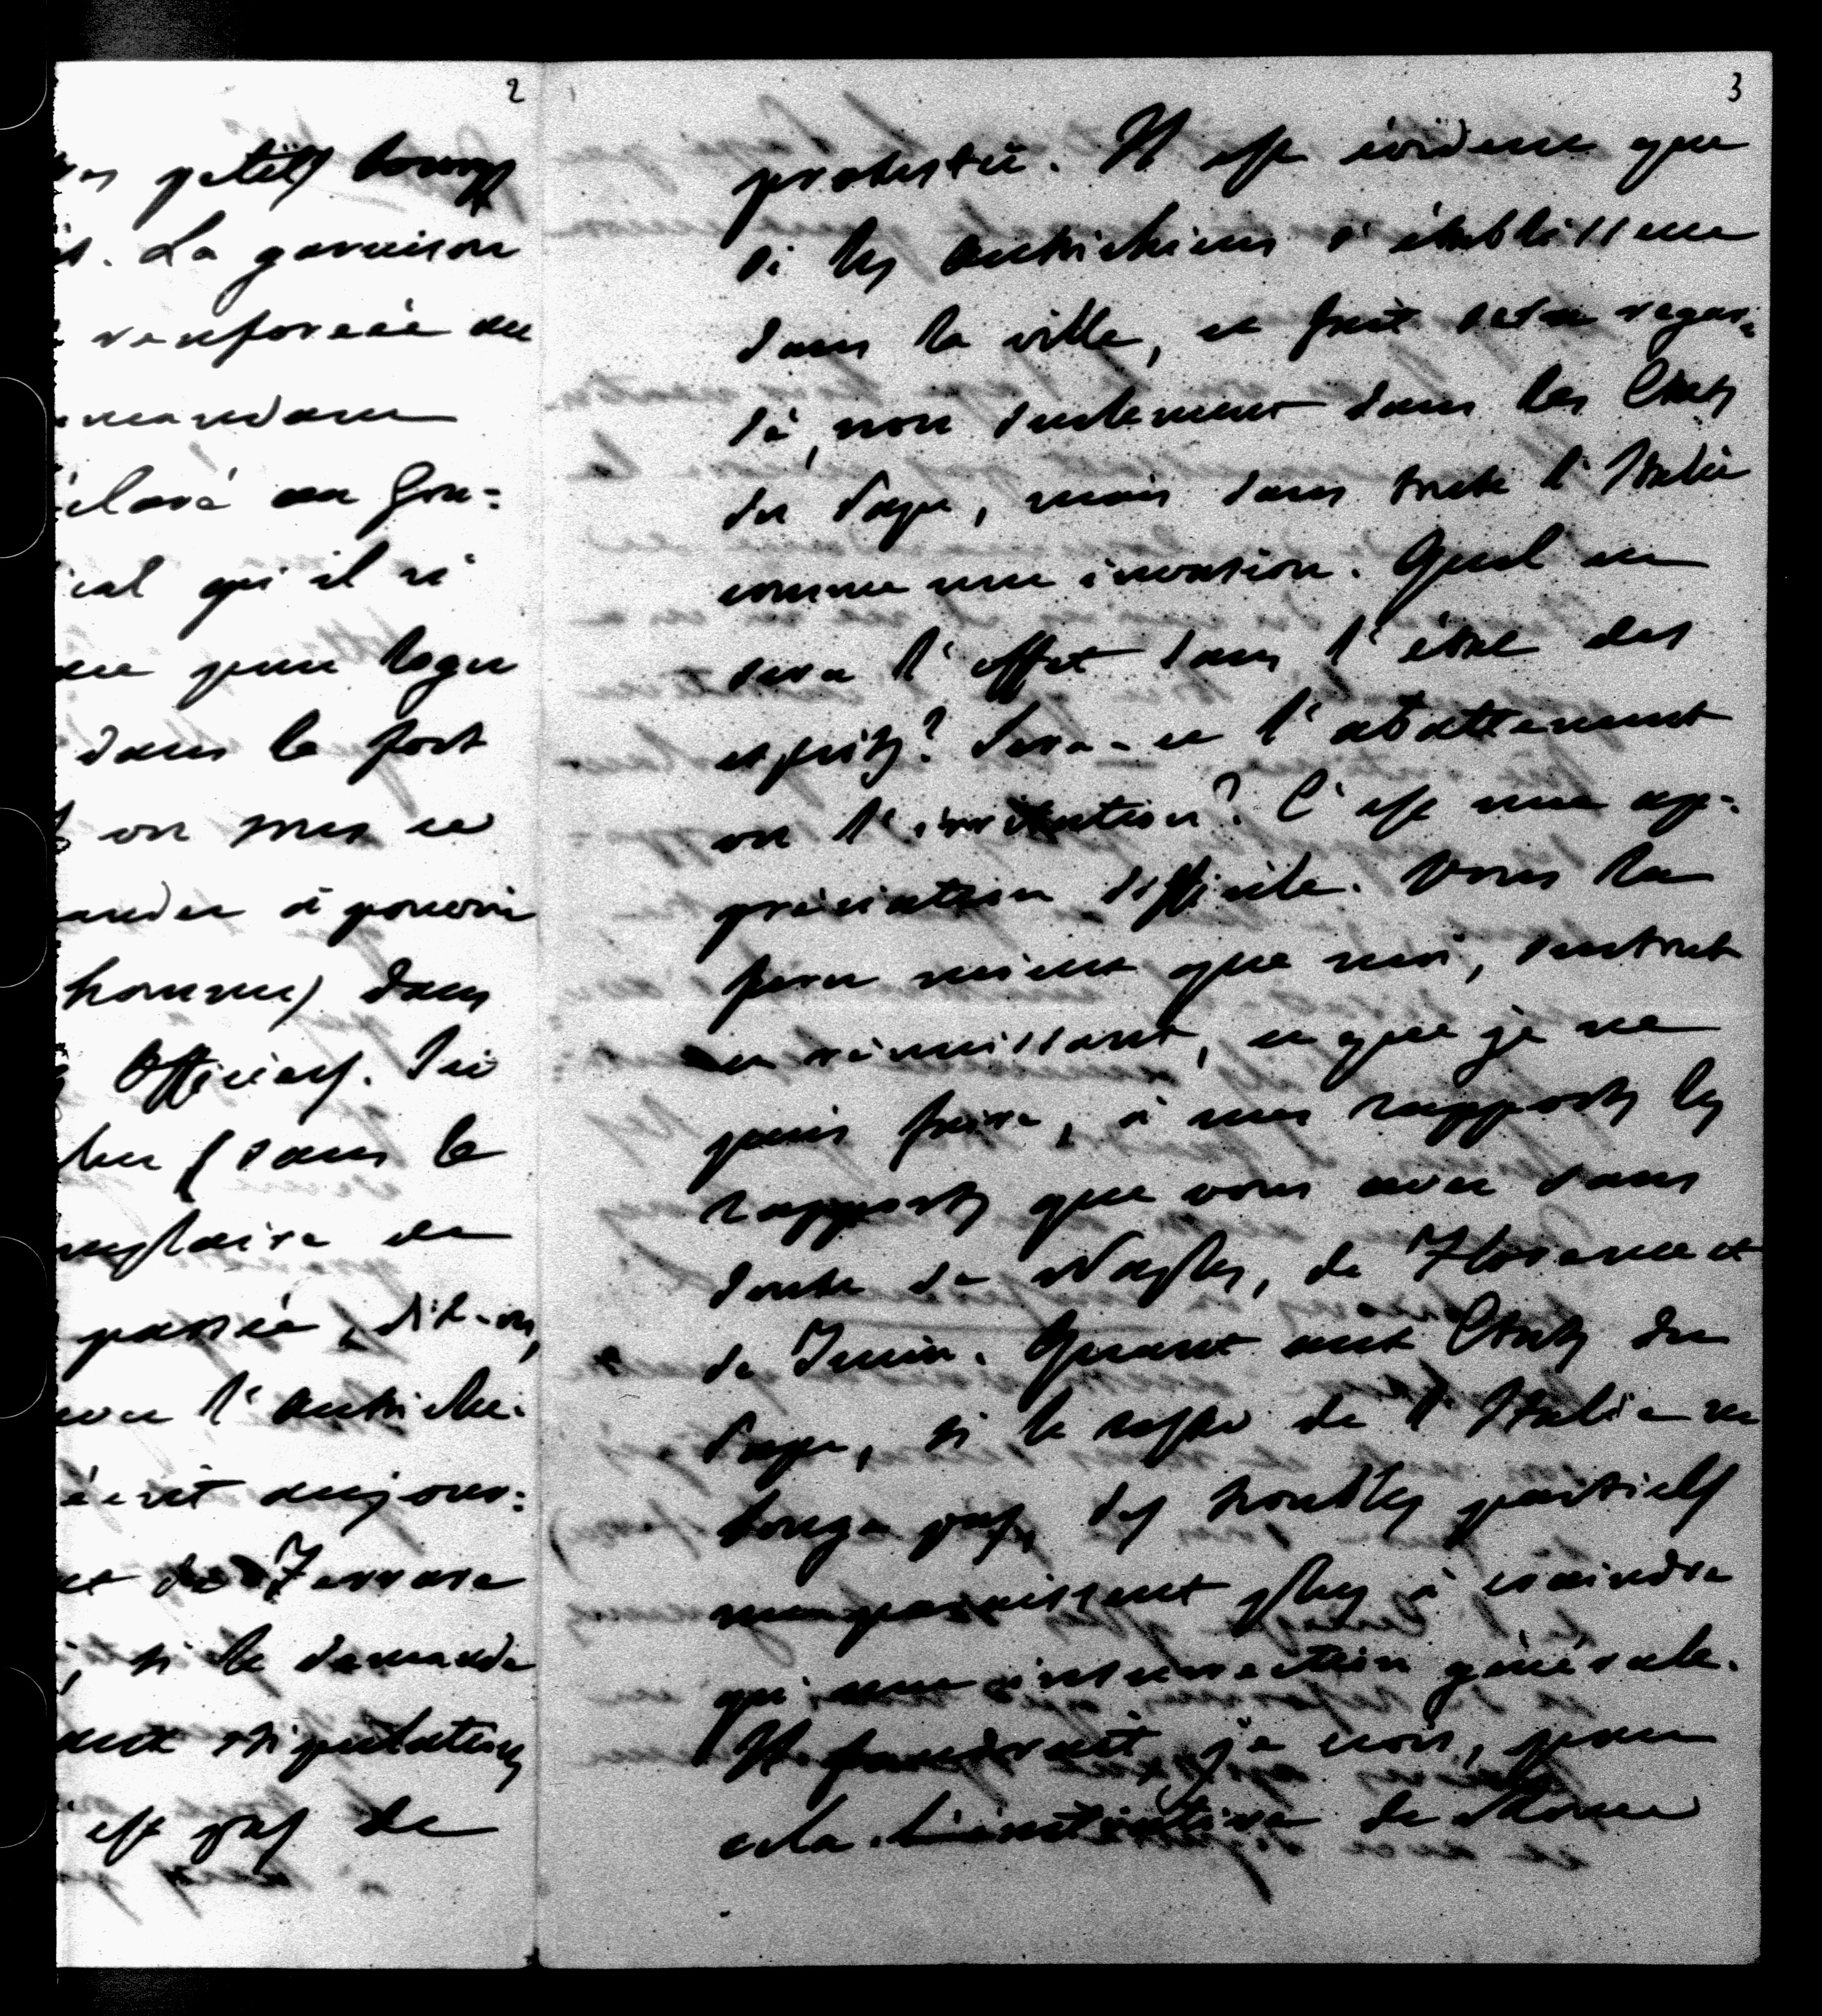 2
petits bourgs
La garnison
renforcée de
mandant
éclaré au Gou=
ical qu'il n'
pour loger
dans le fort
on mes ce
ander à pouvoir
hommes) dans
Officiers. Ici
(dans le
de
passée, dit-on,
avec l'autrichi:
écrit aujour:
et de Ferrare
, si le demande
aux stipulations
est pas de
3
protesté. Il est évident que
si les autrichiens s'établissent
dans la ville, ce fait sera regar:
dé, non seulement dans les Etats
du Pape, mais dans toute l'Italie
comme une invasion. Quel en
sera l'effet dans l'état des
esprits? Sera-ce l'abattement
ou l'irritation? C'est une ap=
préciation difficile. Vous la
ferez mieux que moi, surtout
en réunissant, ce que je ne
puis faire, à mes rapports les
rapports que vous avez sans
doute de Naples, de Florence et
de Turin. Quant aux Etats du
Pape, si le reste de l'Italie ne
bouge pas, des troubles partiels
me paraissent plus à craindre
qu'une insurrection générale.
Il faudrait, je crois, pour
cela l'initiative de Rome